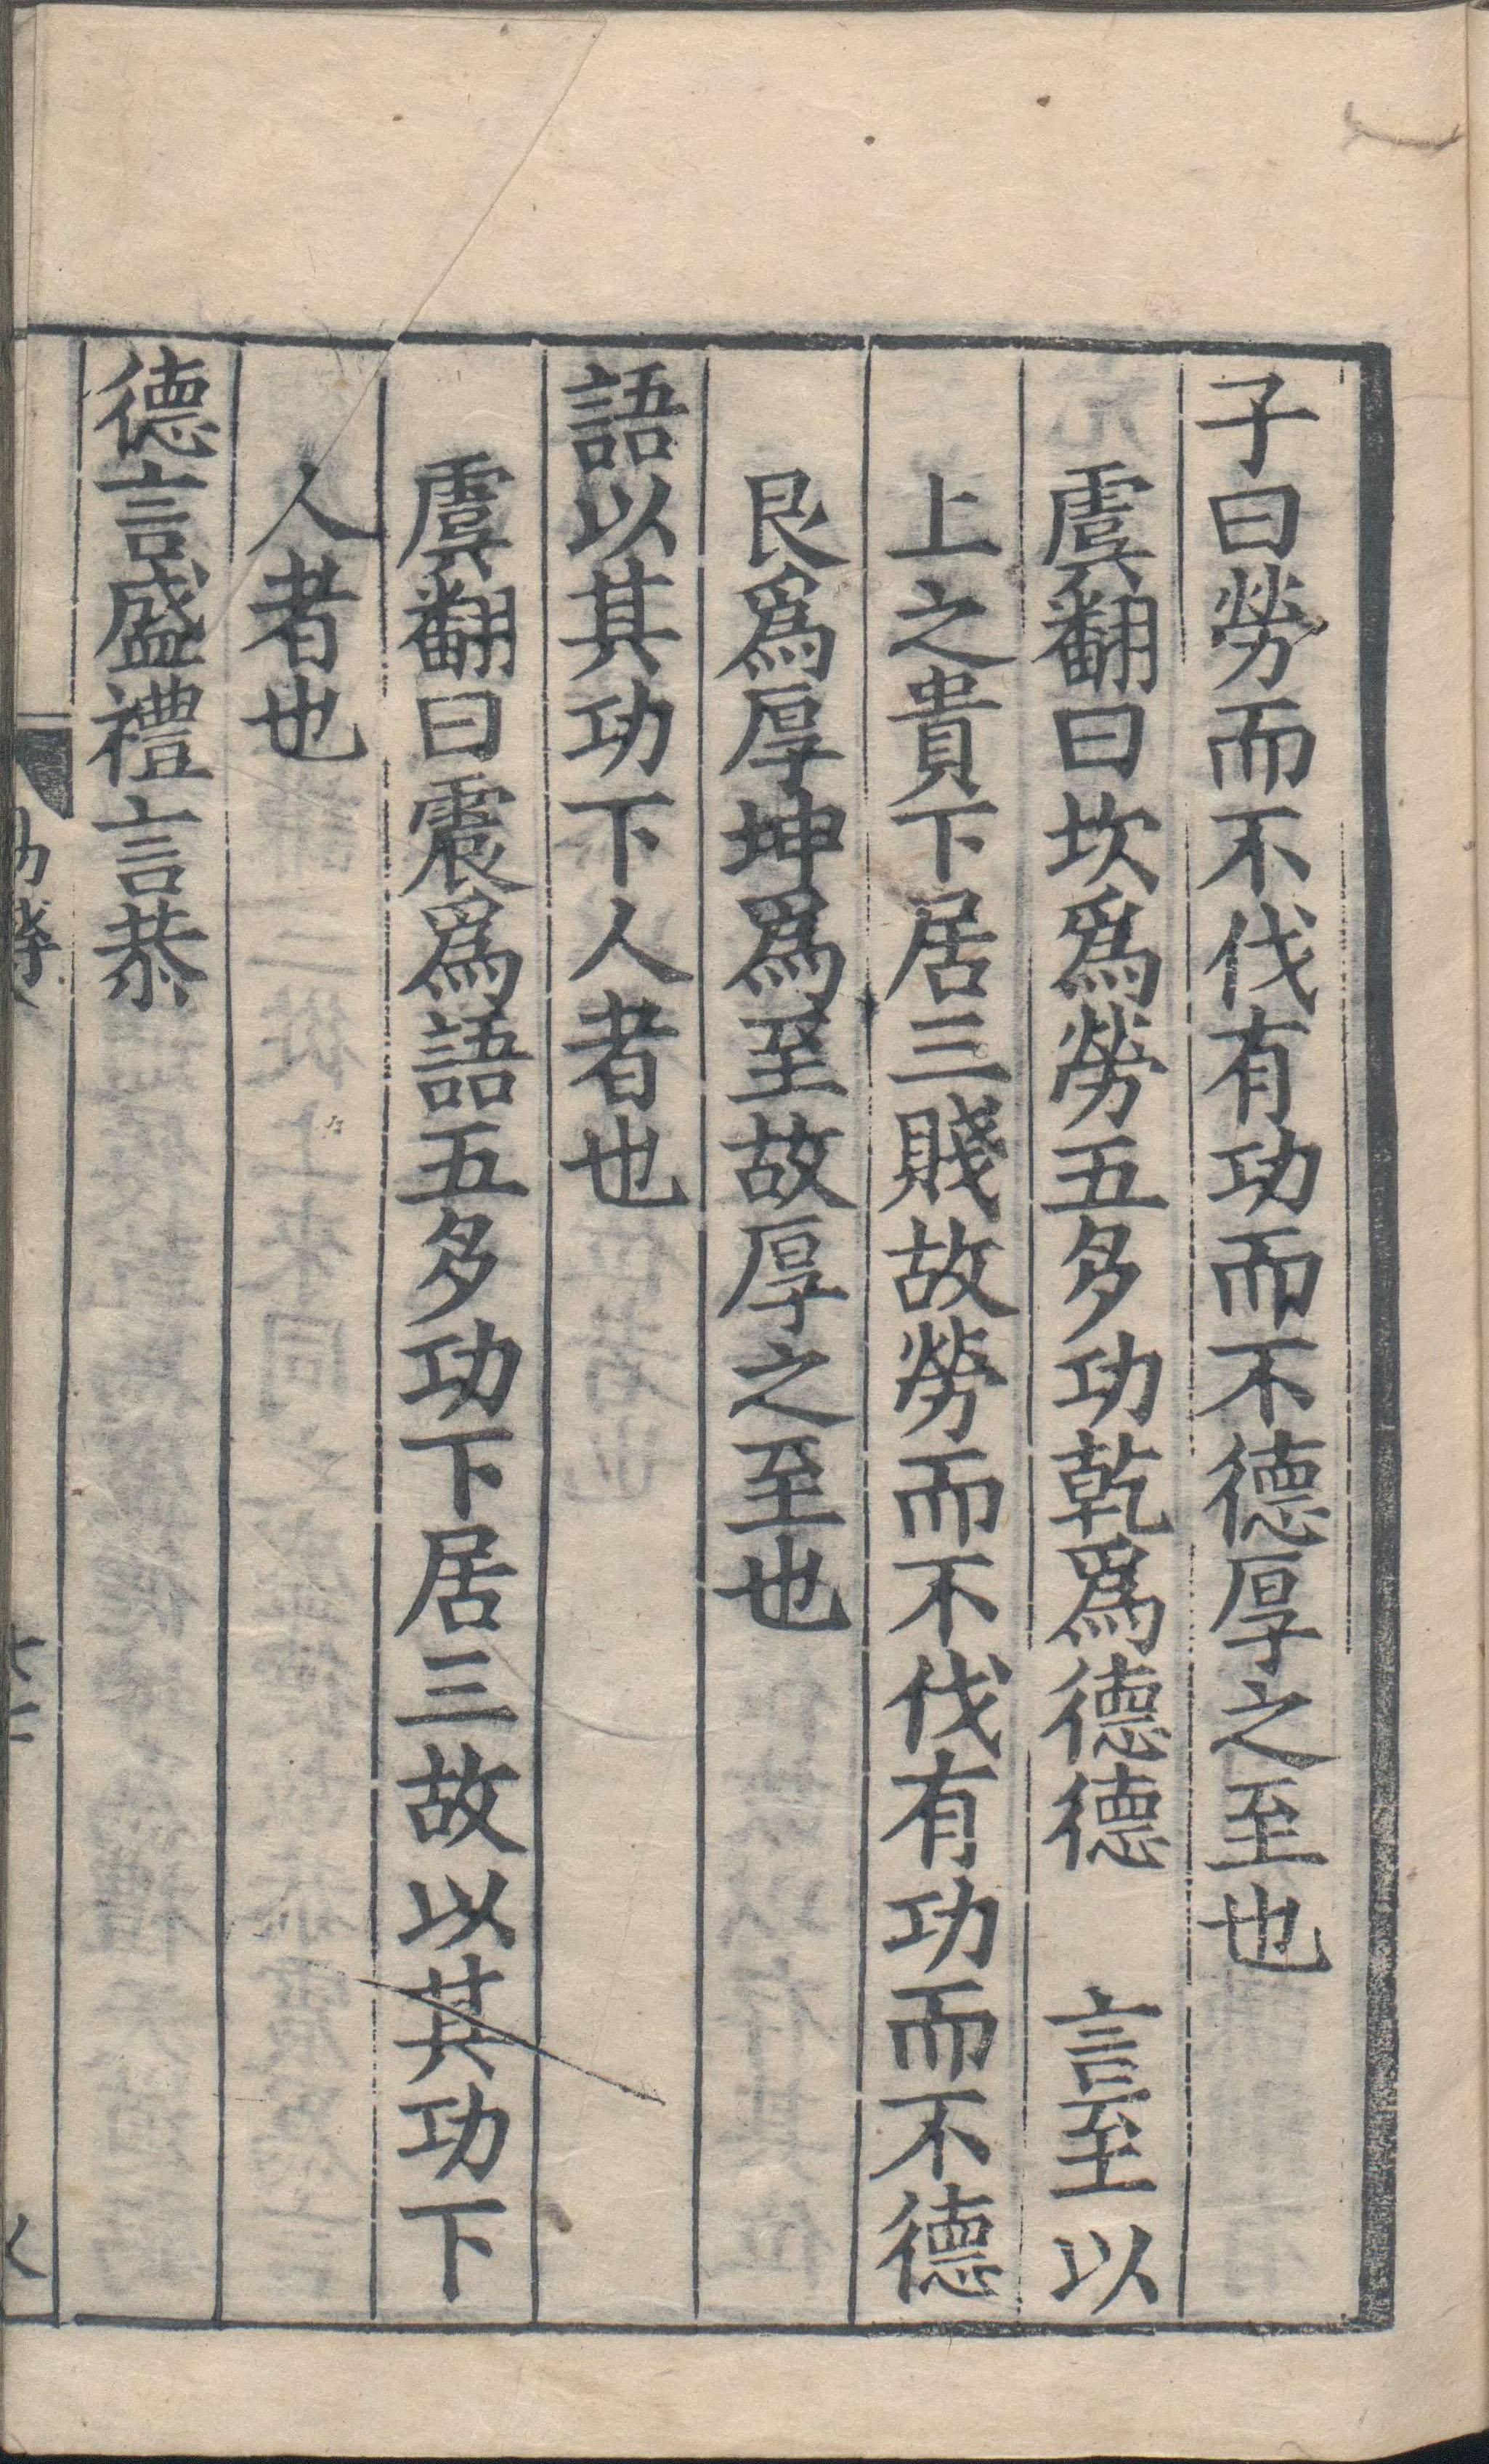 子曰勞而不伐有功而不德厚之至也
虞翻曰坎爲勞五多功乾爲德德　言至以
上之貴下居三賤故勞而不伐有功而不德
艮爲厚坤爲至故厚之至也
語以其功下人者也
虞翻曰震爲語五多功下居三故以其功下
人者也
德言盛禮言恭